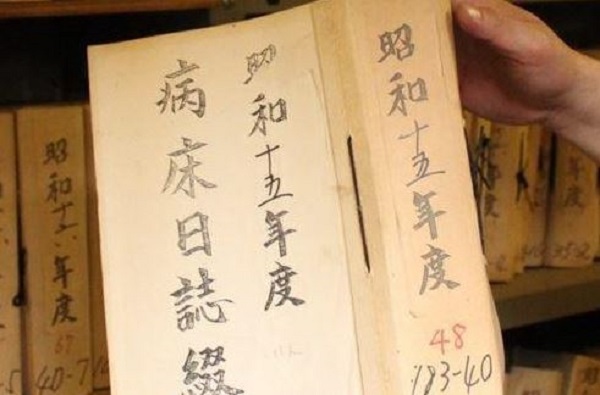 昭和十五年度
48
183-40
昭和十五年度
病床日誌綴
年度
昭和十六年度
67
40-7